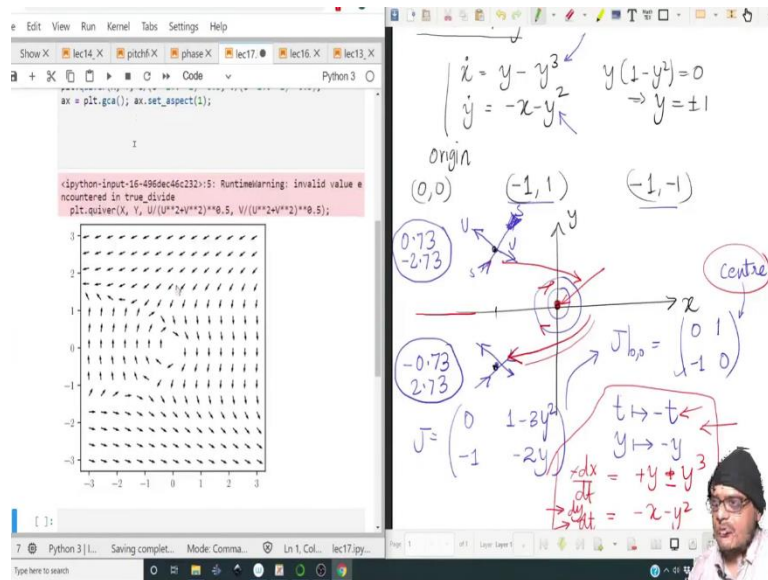 Edit View Run Kernel Tabs Settings Help
Show lec14_ pitchf phase lec17. lec16. lec13_
Code Python 3
ax = plt.gca(); ax.set_aspect(1);
<ipython-input-16-496dec46c232>:5: RuntimeWarning: invalid value e
ncountered in true_divide
plt.quiver(X, Y, U/(U**2+V**2)**0.5, V/(U**2+V**2)**0.5);
3
2
1
0
-1
-2
-3
-3 -2 -1 0 1 2 3
[ ]:
7 Python 3 | I... Saving complet... Mode: Comma... Ln 1, Col... lec17.ipy...
Type here to search
ẋ = y - y³ y(1-y²)=0
ẏ = -x-y² ⇒ y = ±1
origin
(0,0) (-1,1) (-1,-1)
0.73
-2.73
U S
S U
y
x
centre
-0.73
2.73
J|₀,₀ = (0 1
-1 0)
J = (0 1-3y²
-1 -2y)
t ↦ -t
y ↦ -y
dx/dt = +y ± y³
dy/dt = -x-y²
Page 1 of 1 Layer Layer 1